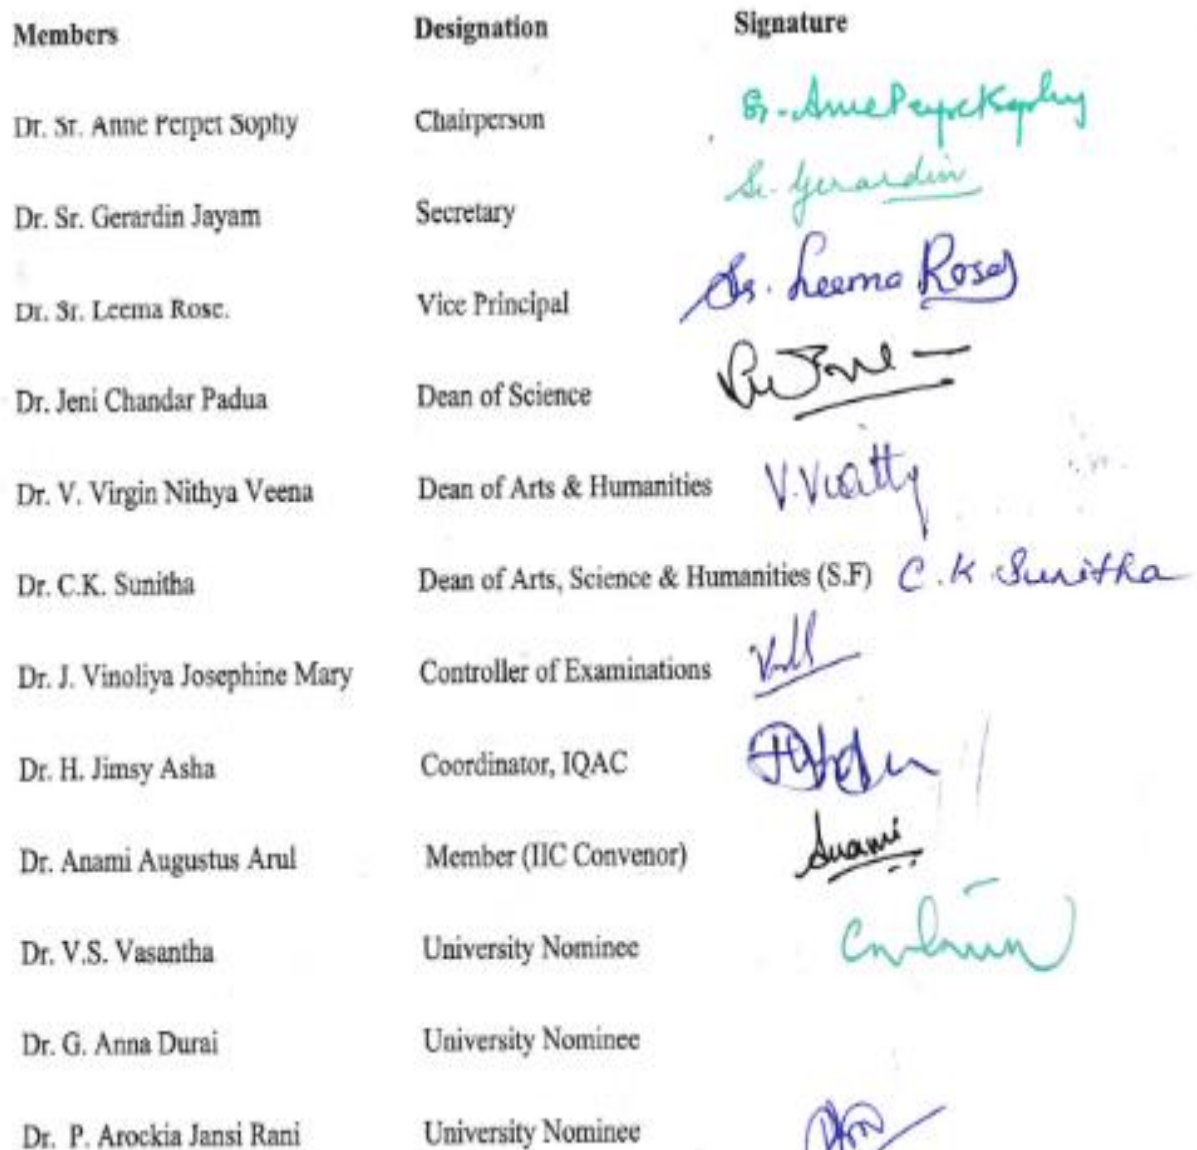 Members Designation Signature
Dr. Sr. Anne Perpet Sophy Chairperson Sr. Anne Perpet Sophy
Dr. Sr. Gerardin Jayam Secretary Sr. Gerardin
Dr. Sr. Leema Rose. Vice Principal Sr. Leema Rose
Dr. Jeni Chandar Padua Dean of Science
Dr. V. Virgin Nithya Veena Dean of Arts & Humanities
Dr. C.K. Sunitha Dean of Arts, Science & Humanities (S.F) C.K. Sunitha
Dr. J. Vinoliya Josephine Mary Controller of Examinations
Dr. H. Jimsy Asha Coordinator, IQAC
Dr. Anami Augustus Arul Member (IIC Convenor) Anami
Dr. V.S. Vasantha University Nominee
Dr. G. Anna Durai University Nominee
Dr. P. Arockia Jansi Rani University Nominee